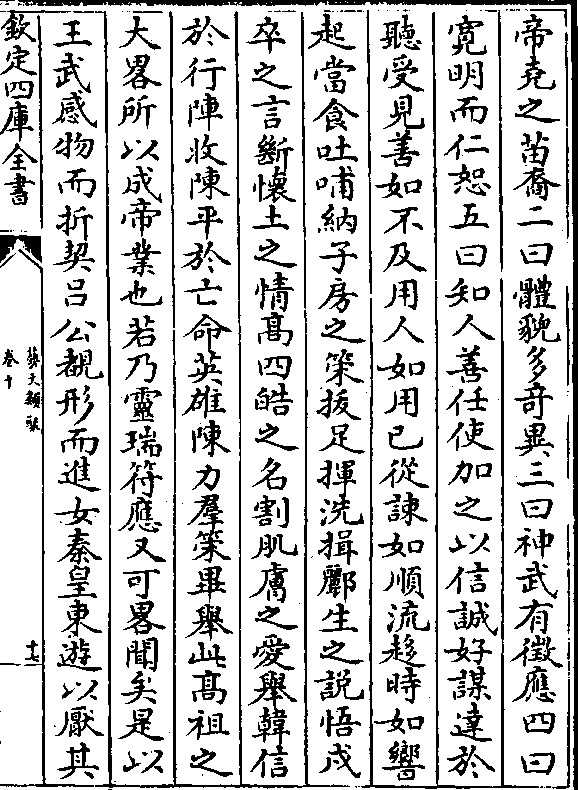 帝堯之苗裔二曰體貌多奇異三曰神武有徵應四曰
寛明而仁恕五曰知人善任使加之以信誠好謀達於
聽受見善如不及用人如用已從諫如順流趍時如響
起當食吐哺納子房之策拔足揮洗揖酈生之說悟戍
卒之言斷懷土之情髙四皓之名割肌膚之愛舉韓信
於行陣收陳平於亡命英雄陳力羣策畢舉此髙祖之
大畧所以成帝業也若乃靈瑞符應又可畧聞矣是以
王武感物而折契吕公覩形而進女秦皇東遊以厭其
欽定四庫全書
藝文類聚
卷十
十七